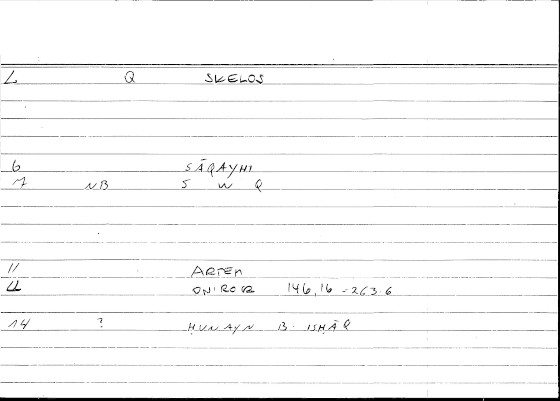 L Q SKELOS
6 SĀQAYHI
7 NB S W Q
11 ARTEM
LL ONIROCR 146,16-263.6
14 ? ḤUNAYN B. ISḤĀQ